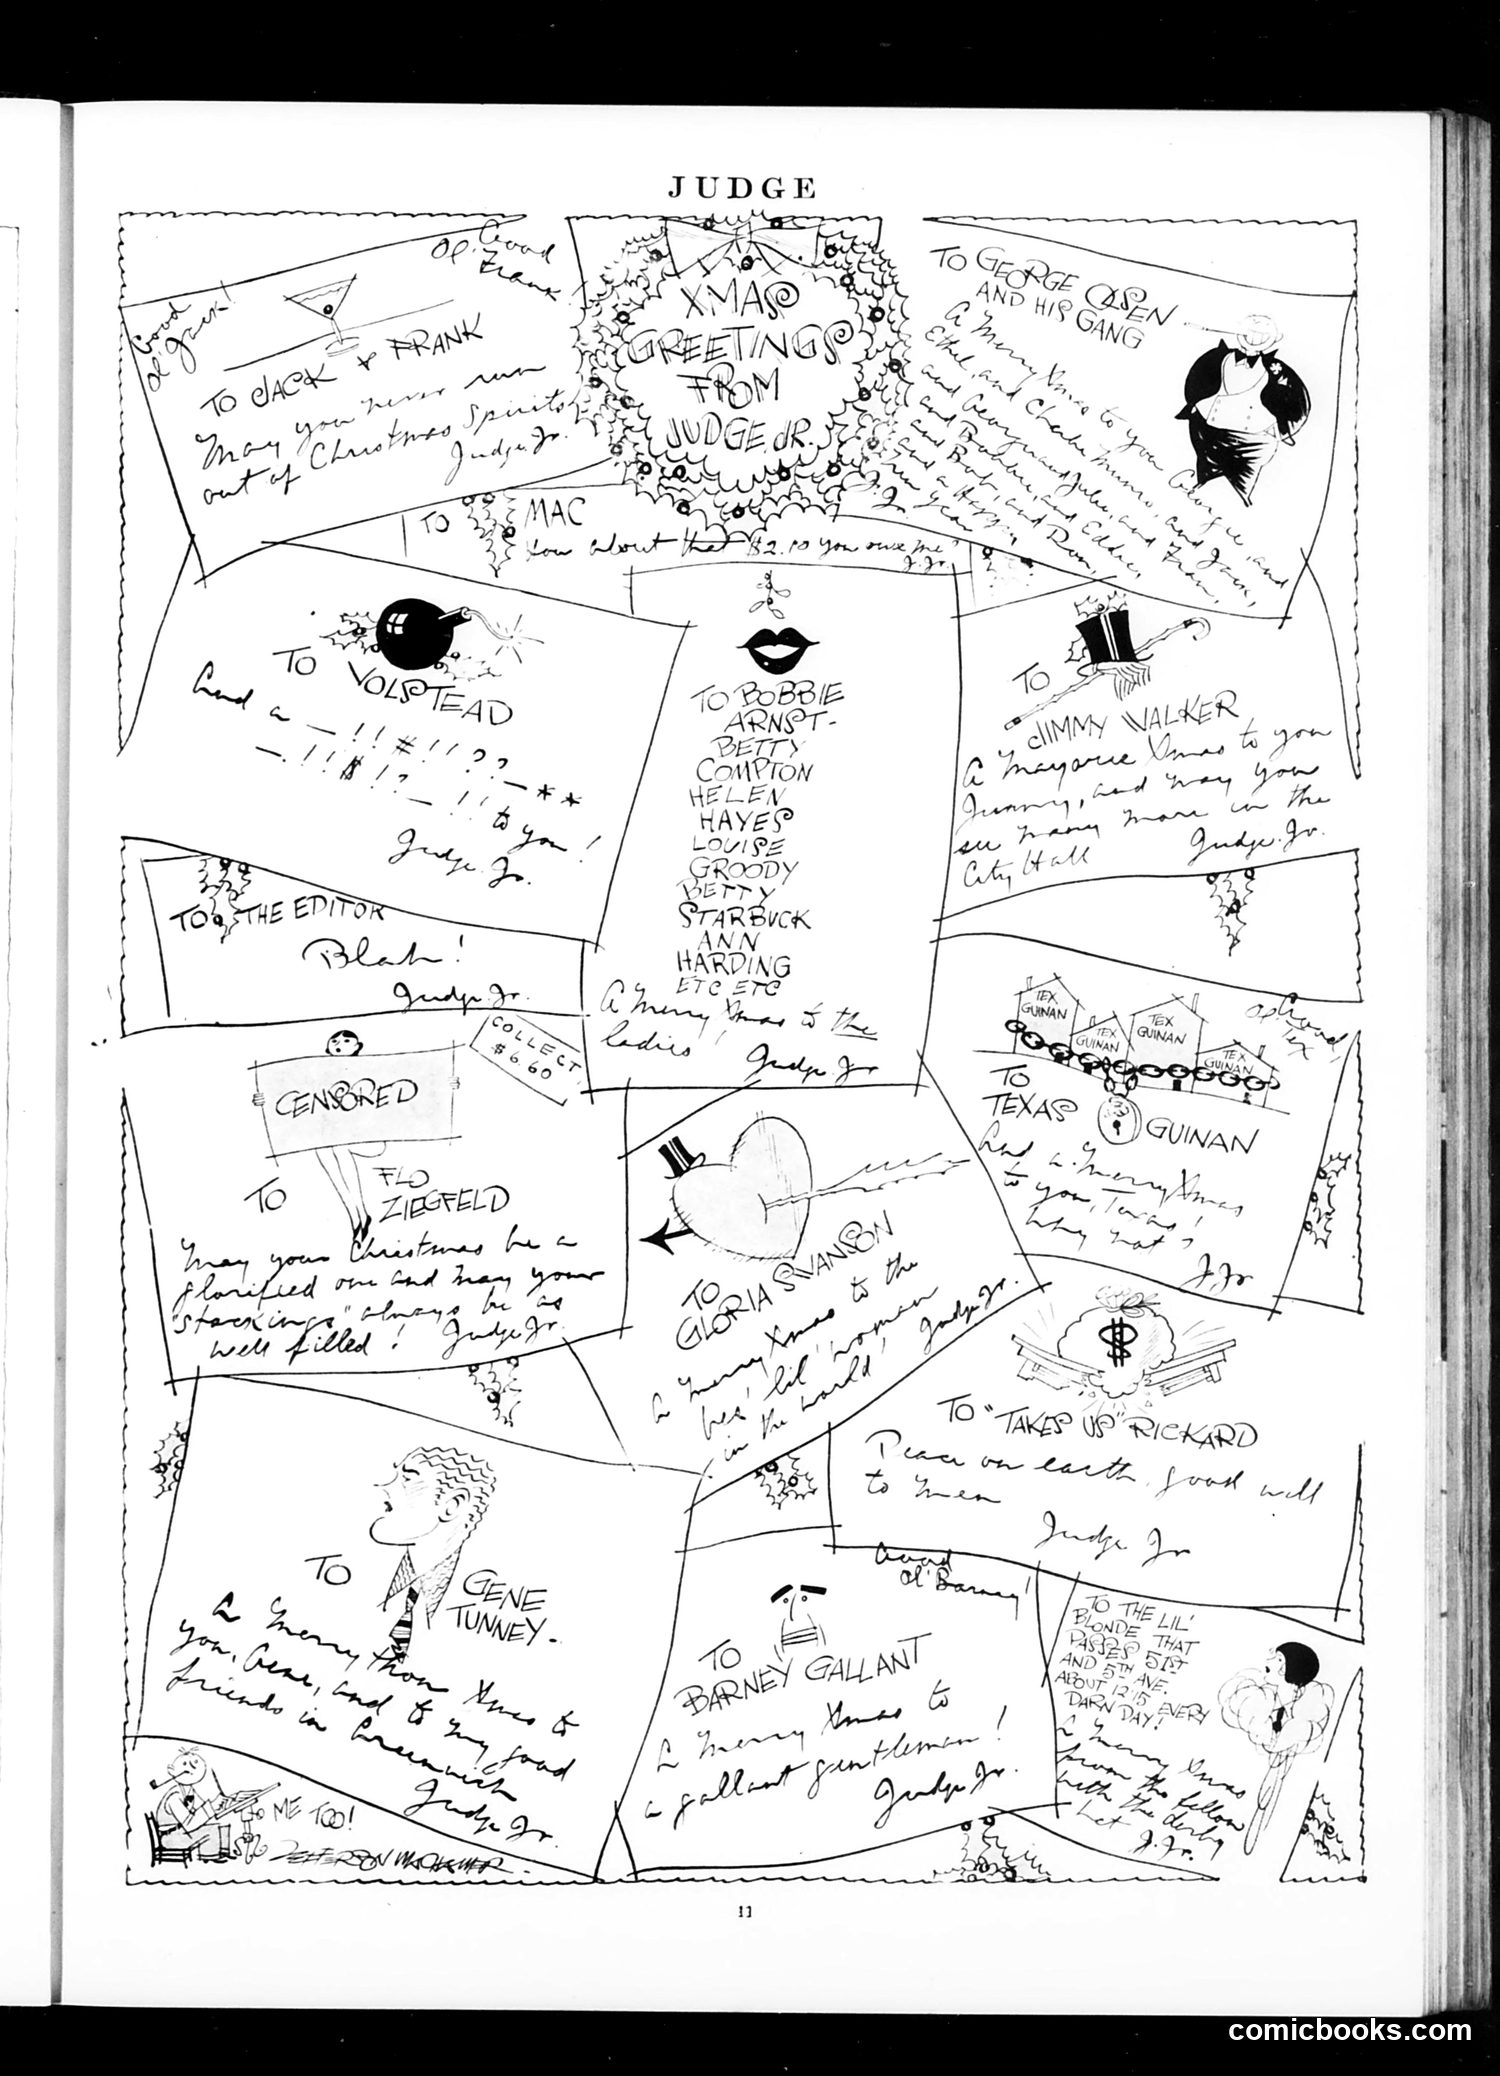 JUDGE
Good
Ol' Jack!
Good
Ol' Frank
TO JACK & FRANK
May you never run
out of Christmas Spirits!
Judge Jr.
XMAS
GREETINGS
FROM
JUDGE JR.
TO GEORGE OLSEN
AND HIS GANG
A Merry Xmas to you George, and
Ethel, and Charlie Munro, and Jack,
and George and Jules, and Fran,
and Bobbie, and Eddie,
and Bob, and Don,
and a Happy
New Year
J. Jr.
TO MAC
How about that $2.10 you owe me?
J. Jr.
TO VOLSTEAD
And a —!!#!!??—**
—.!!$!?—!! to you!
Judge Jr.
TO BOBBIE
ARNST-
BETTY
COMPTON
HELEN
HAYES
LOUISE
GROODY
BETTY
STARBUCK
ANN
HARDING
ETC ETC
A Merry Xmas to the
ladies!
Judge Jr
TO
JIMMY WALKER
A Mayorie Xmas to you
Jimmy, and may you
see many more in the
City Hall
Judge Jr.
TO THE EDITOR
Blah!
Judge Jr.
COLLECT
$6.60
CENSORED
TO
FLO
ZIEGFELD
May your Christmas be a
glorified one and may your
"stockings" always be as
well filled!
Judge Jr.
TO
GLORIA SWANSON
A Merry Xmas to the
bes' lil' woman
in the world!
Judge Jr.
TEX
GUINAN
TEX
GUINAN
TEX
GUINAN
TEX
GUINAN
Good
Ol' Tex
TO
TEXAS GUINAN
And a Merry Xmas
to you, Texas!
Why not?
J. Jr
$
TO "TAKES US" RICKARD
Peace on earth, good will
to men
Judge Jr
TO
GENE
TUNNEY-
A Merry thou Xmas to
you, Gene, and to my good
friends in Greenwich
Judge Jr.
Good
Ol' Barney!
TO
BARNEY GALLANT
A Merry Xmas to
a gallant gentleman!
Judge Jr.
TO THE LIL'
BLONDE THAT
PASSES 51ST
AND 5TH AVE.
ABOUT 12:15 EVERY
DARN DAY!
A Merry Xmas
from the fellow
with the derby
hat
J. Jr.
ME TOO!
JEFFERSON MACHAMER.
11
comicbooks.com